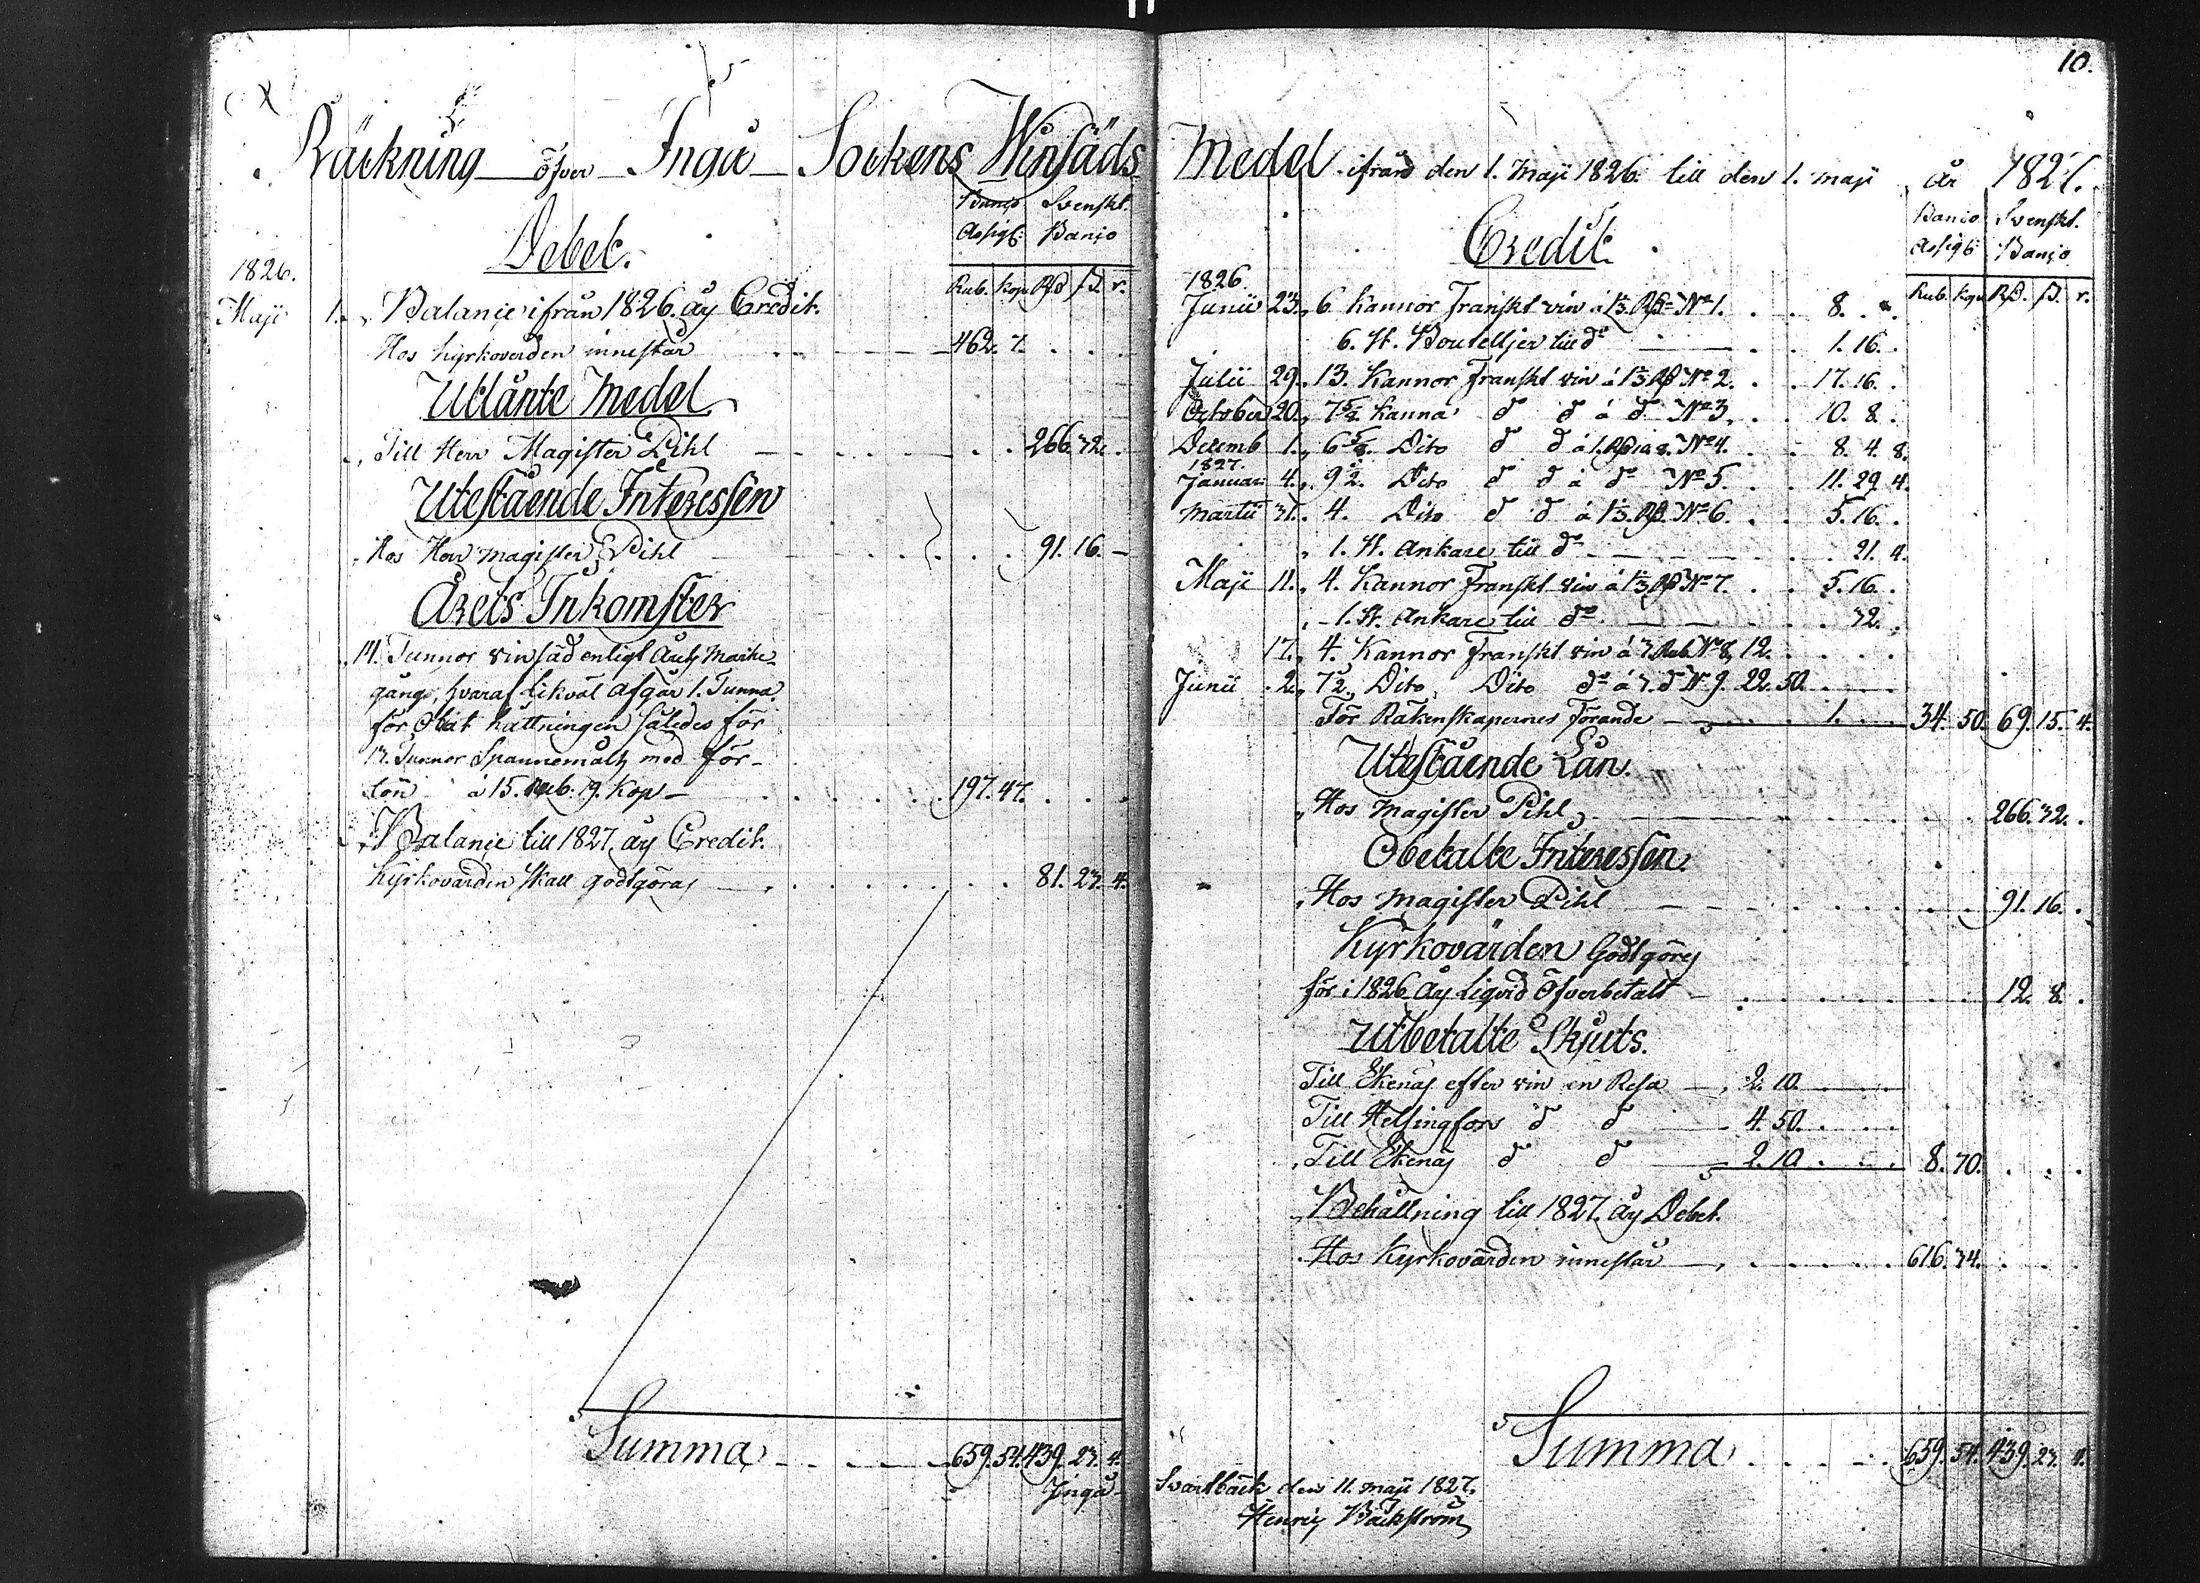 10.
Räckning öfver Ingå Sockens Winsäds
Banco Svenskt.
Assigt: Banco
Debet.
1826.
Rub. kop. Rd ß. r.
Maji 1. Balance ifrån 1826. åhs Credit.
Hos kyrkovärden innestår 462. 7.
Utlånte Medel
Till Herr Magister Pihl 266. 32.
Utestående Interessen
Hos Herr Magister Pihl 91. 16. -
Årets Inkomster
14. Tunnor vinsäd enligt årets Marke-
gång, hvaraf likväl afgår 1. Tunna
för Oblat hållningen således för
13. Tunnor Spannemåls med för-
lön á 15. Rub: 19. Kop 197. 47.
Balance till 1827. åhs Credit.
Kyrkovärden skall godtgöras 81. 23. 4.
Summa 659. 54. 439. 23. 4.
Ingå
Medel ifrån den 1. Maji 1826. till den 1. Maji år 1827.
Banco Svenskt.
Assigt: Banco
Credit.
1826.
Rub. kop. Rd. ß. r.
Junii 23. 6 Kannor Franskt vin á 1⅓ Rd No 1. 8. .
6. St. Boutelljer till do 1. 16.
Julii 29. 13. Kannor Franskt vin á 1⅓ Rd No 2. 17. 16.
October 20. 7 6/8 Kanna d d á d No 3. 10. 8.
Decemb 1. 6 5/8 Dito d d á 1. Rd No 4. 8. 4. 8.
1827.
Januari 4. 9 ½. Dito d d á do No 5. 11. 29. 4.
Martii 31. 4. Dito d d á 1⅓. Rd. No 6. 5. 16.
1. St. Ankare till do 21. 4.
Maji 11. 4. Kannor Franskt vin á 1⅓ Rd No 7. 5. 16.
1. St. Ankare till do 32.
17. 4. Kannor Franskt vin á 3. Rub No 8, 12.
Junii 2. 7 ½ Dito Dito do á 3. d No 9. 22. 50.
För Räkenskapernes förande 1. 34. 50. 69. 15. 4.
Utestående Lån.
Hos Magister Pihl 266. 32.
Obetalte Interessen.
Hos Magister Pihl 91. 16.
Kyrkovärden Godtgöres
för i 1826 åhs liqvid öfverbetalt 12. 8.
Utbetalte Skjuts.
Till Ekenäs efter vin en Resa 2. 10.
Till Helsingfors d d 4. 50.
Till Ekenäs d d 2. 10. 8. 70.
Behållning till 1827. åhs Debet.
Hos Kyrkovärden innestår 616. 34.
Summa 659. 54. 439. 23. 4.
Svartbäck den 11. Maji 1827.
Henric Bäckström